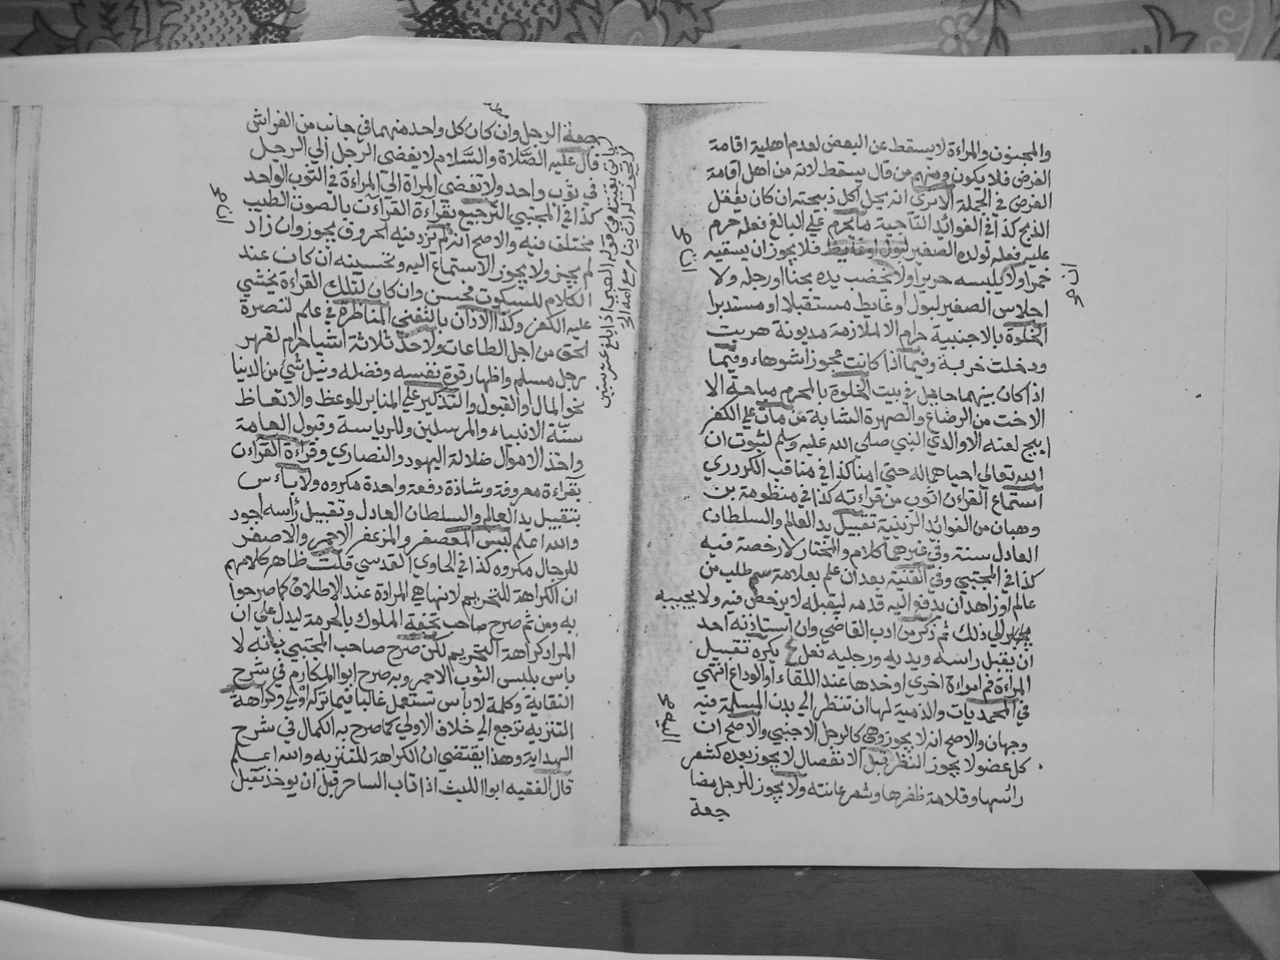 والمجنون والمراءة لا يسقط عن البعض لعدم اهلية اقامة
الفرض فلا يكون ومنهم من قال يسقط لانه من اهل اقامة
الفرض في الجملة الاترى انه يحل اكل ذبيحته ان كان يعقل
الذبح كذا في الفوائد التاجية ما يحرم على البالغ فعله حرم
عليه فعله لولده الصغير فلا يجوز ان يسقيه
خمرا ولا يلبسه حريرا ولا يخضب يده بحنا او رجله ولا
اجلاس الصغير لبول او غايط مستقبلا او مستدبرا
الخلوة بالاجنبية حرام الا لملازمة مديونة هربت
ودخلت خربة وفيما اذا كانت عجوزا شوهاء وفيما
اذا كان بينهما حايل في بيت الخلوة بالمحرم مباحة الا
الاخت من الرضاع والصهرة الشابة من مات على الكفر
ابيح لعنه الا والدي النبي صلى الله عليه وسلم لثبوت ان
الله تعالى احياهما له حتى امنا كذا في مناقب الكردري
استماع القراءن اثوب من قراءته كذا في منظومة بن
وهبان من الفوائد الزينية تقبيل يد العالم والسلطان
العادل سنة وفي غيرهما كلام والمختار لا رخصة فيه
كذا في المجتبي وفي القنية بعد ان علم بعلامة سم طلب من
عالم او زاهد ان يدفع اليه قدمه ليقبله لا يرخص فيه ولا يجيبه
الى ذلك ثم ذكر من ادب القاضي وان استاذنه احد
ان يقبل راسه ويديه ورجليه فعل يكره تقبيل
المراءة فم امراءة اخرى او خدها عند اللقاء او الوداع انتهى
في المحمديات والذمية لها ان تنظر الى بدن المسلمة فيه
وجهان والاصح انه لا يجوز وهي كالرجل الاجنبي والاصح ان
كل عضو لا يجوز النظر قبل الانفصال لا يجوز بعده كشعر
راسها وقلامة ظفرها وشعر عانته ولا يجوز للرجل مضا
جعة
جعة الرجل وان كان كل واحد منهما في جانب من الفراش
قال عليه الصلاة والسلام لا يفضي الرجل الى الرجل
في ثوب واحد ولا تفضي المراة الى المراءة في الثوب الواحد
كذا في المجتبي الترجيع بقراءة القراءت بالصوت الطيب
مختلف فيه والاصح انه لم تزد فيه الحروف يجوز وان زاد
لم يجز ولا يجوز الاستماع اليه وتحسينه ان كان عند
الكلام للسكوت فحسن وان كان لتلك القراءة يخشى
عليه الكفر وكذا الاذان بالتغني المناظرة في علم لنصرة
الحق من اجل الطاعات ولاحد ثلاثة اشياء حرام لقهر
رجل مسلم واظهار قوة نفسه وفضله ونيل شي من الدنيا
نحو المال والقبول والتذكير على المنابر للوعظ والاتعاظ
سنة الانبياء والمرسلين وللرياسة وقبول العامة
واخذ الاموال ضلالة اليهود والنصاري وقراءة القراءن
بقراءة معروفة وشاذة دفعة واحدة مكروه ولا باءس
بتقبيل يد العالم والسلطان العادل وتقبيل رأسه اجود
والله اعلم لبس المعصفر والمزعفر الاحمر والاصفر
للرجال مكروه كذا في الحاوي القدسي قلت ظاهر كلامهم
ان الكراهة للتحريم لانها هي المرادة عند الاطلاق كما صرحوا
به ومن ثم صرح صاحب تحفة الملوك بالحرمة ليدل على ان
المراد كراهة التحريم لكن صرح صاحب المجتبي بانه لا
باس بلبس الثوب الاحمر وبه صرح ابو المكارم في شرح
النقاية وكلمة لا باس تستعمل غالبا فيما تركه اولى وكراهة
التنزيه ترجع الى خلاف الاولى كما صرح به الكمال في شرح
الهداية وهذا يقتضي ان الكراهة للتنزيه والله اعلم
قال الفقيه ابو الليث اذا تاب الساحر قبل ان يوخذ تقبل